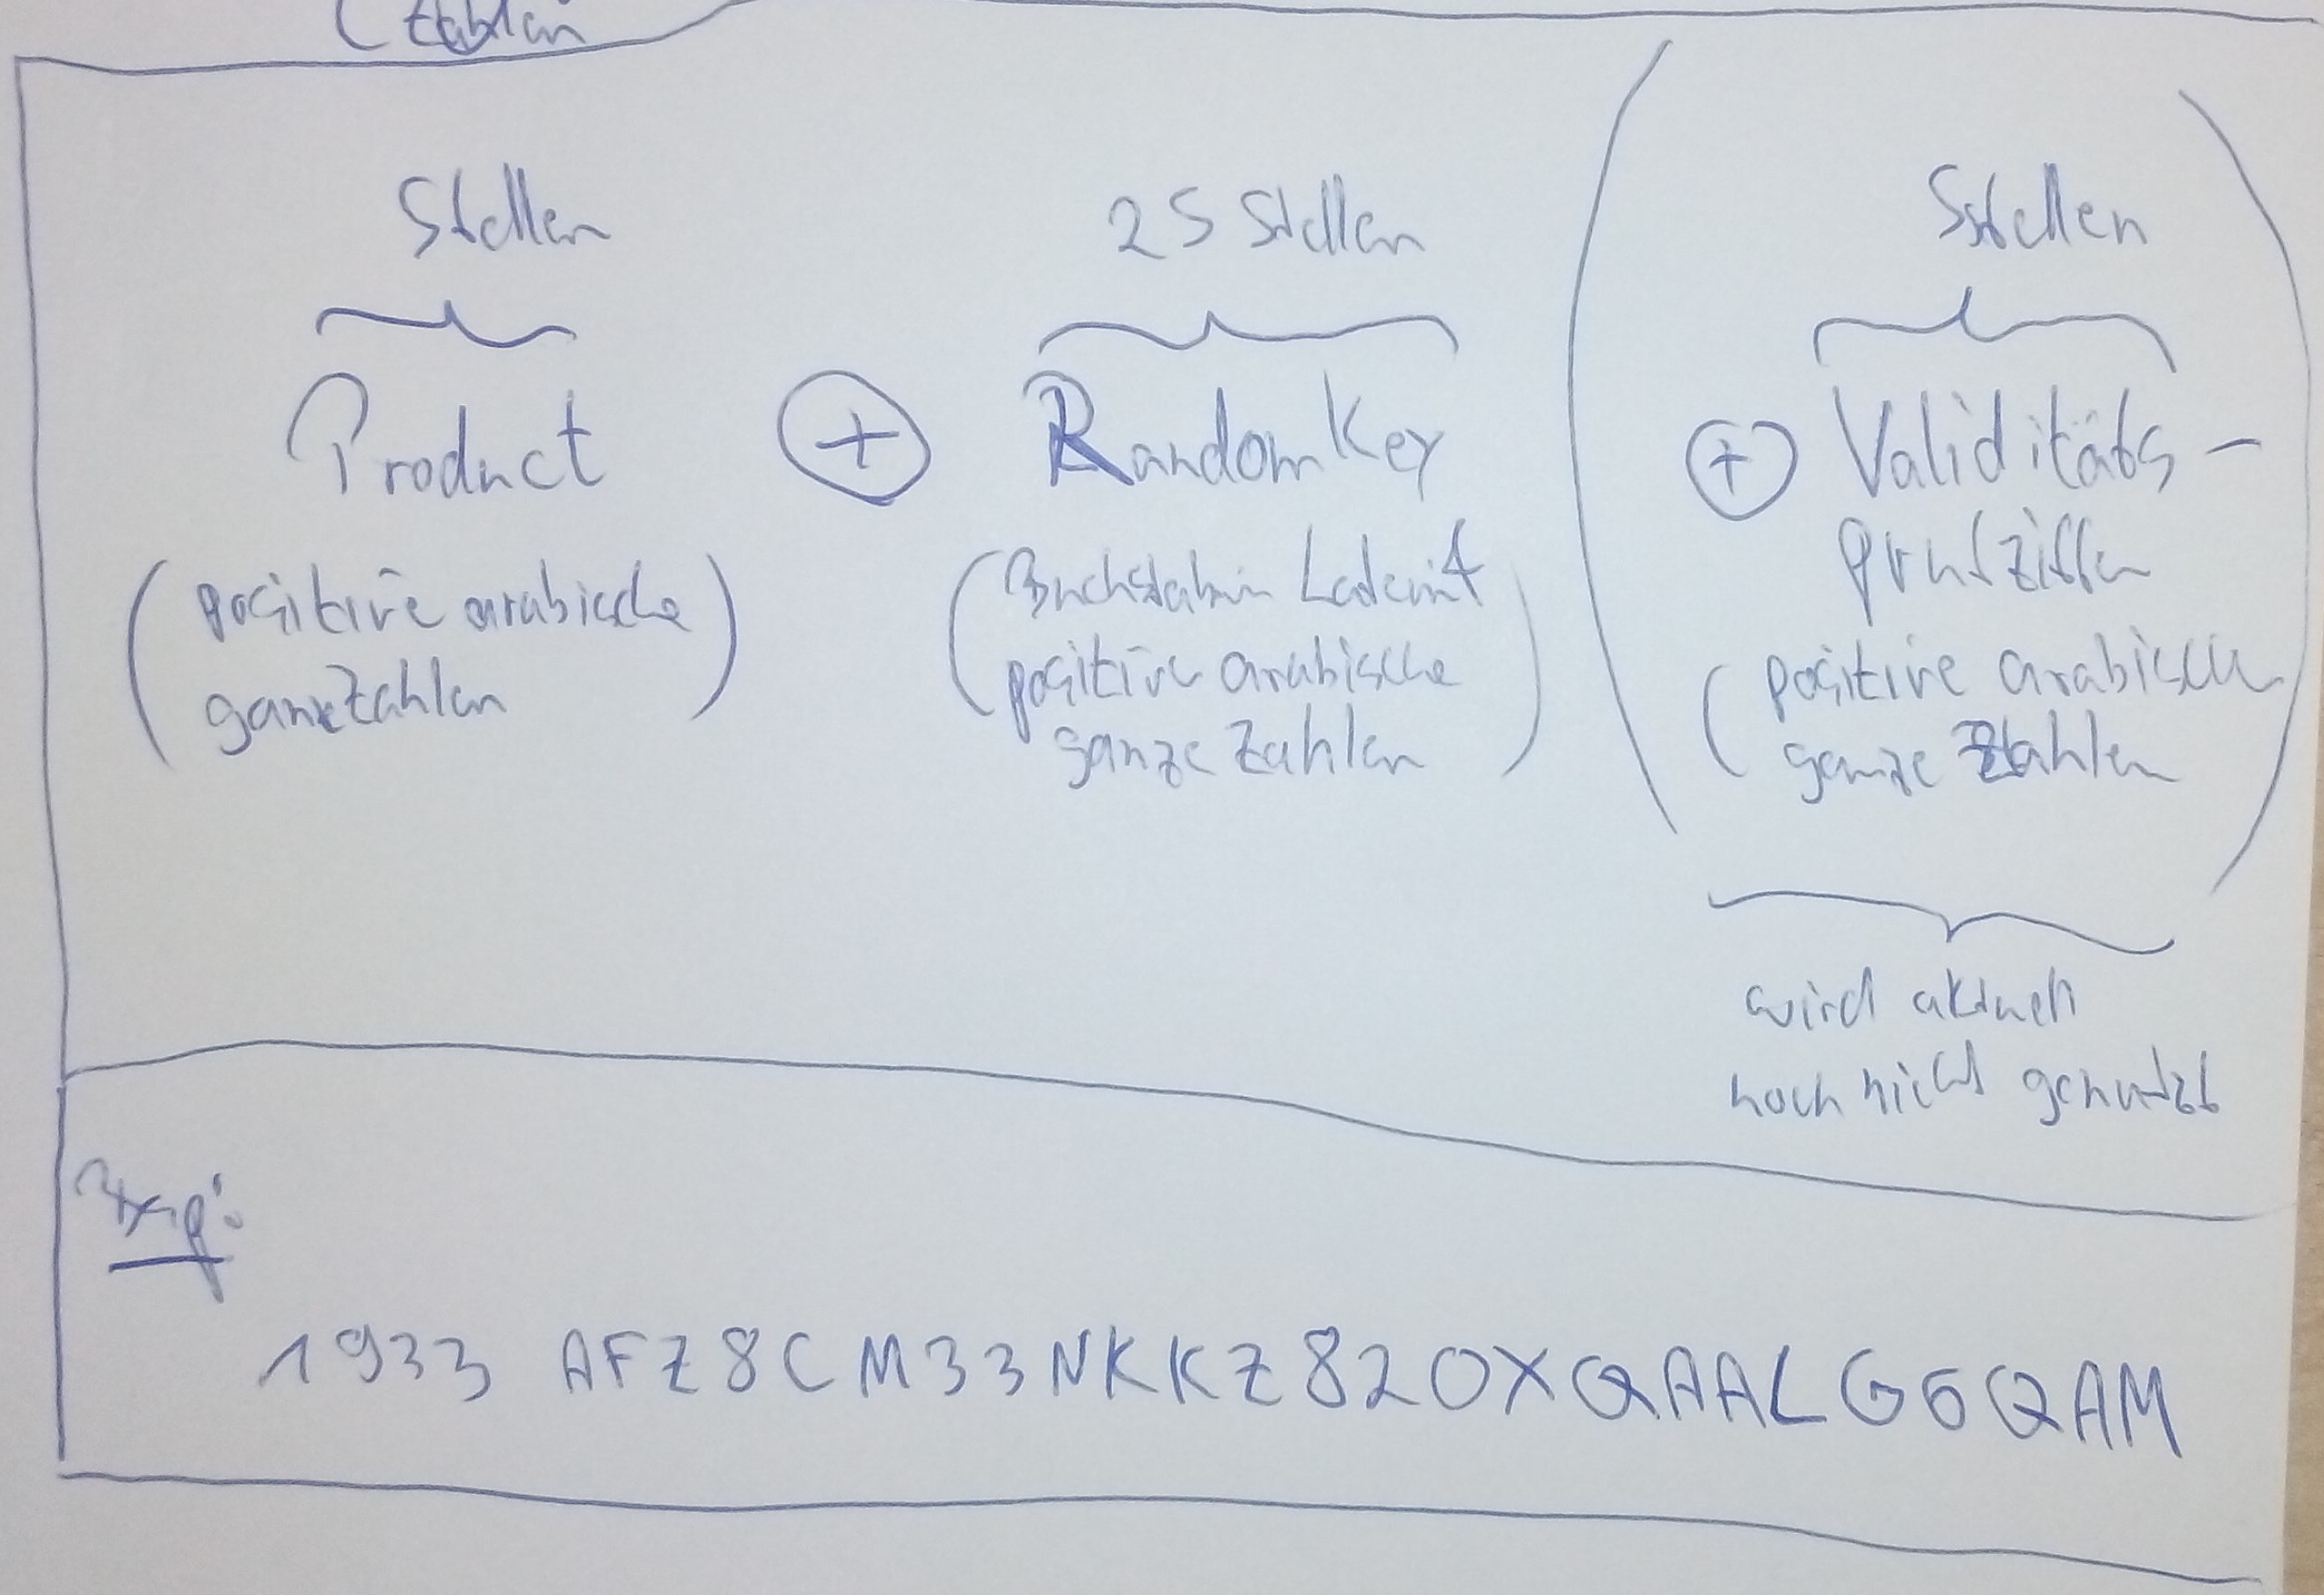 (Zahlen
Stellen 25 Stellen Stellen
Product + RandomKey + Validitäts-
prüfziffer
(positive arabische
ganze Zahlen)
(Buchstaben Latein
positive arabische
ganze Zahlen)
(positive arabische
ganze Zahlen
wird aktuell
noch nicht genutzt
1933 AFZ8CM33NKKZ820XQAALG6QAM